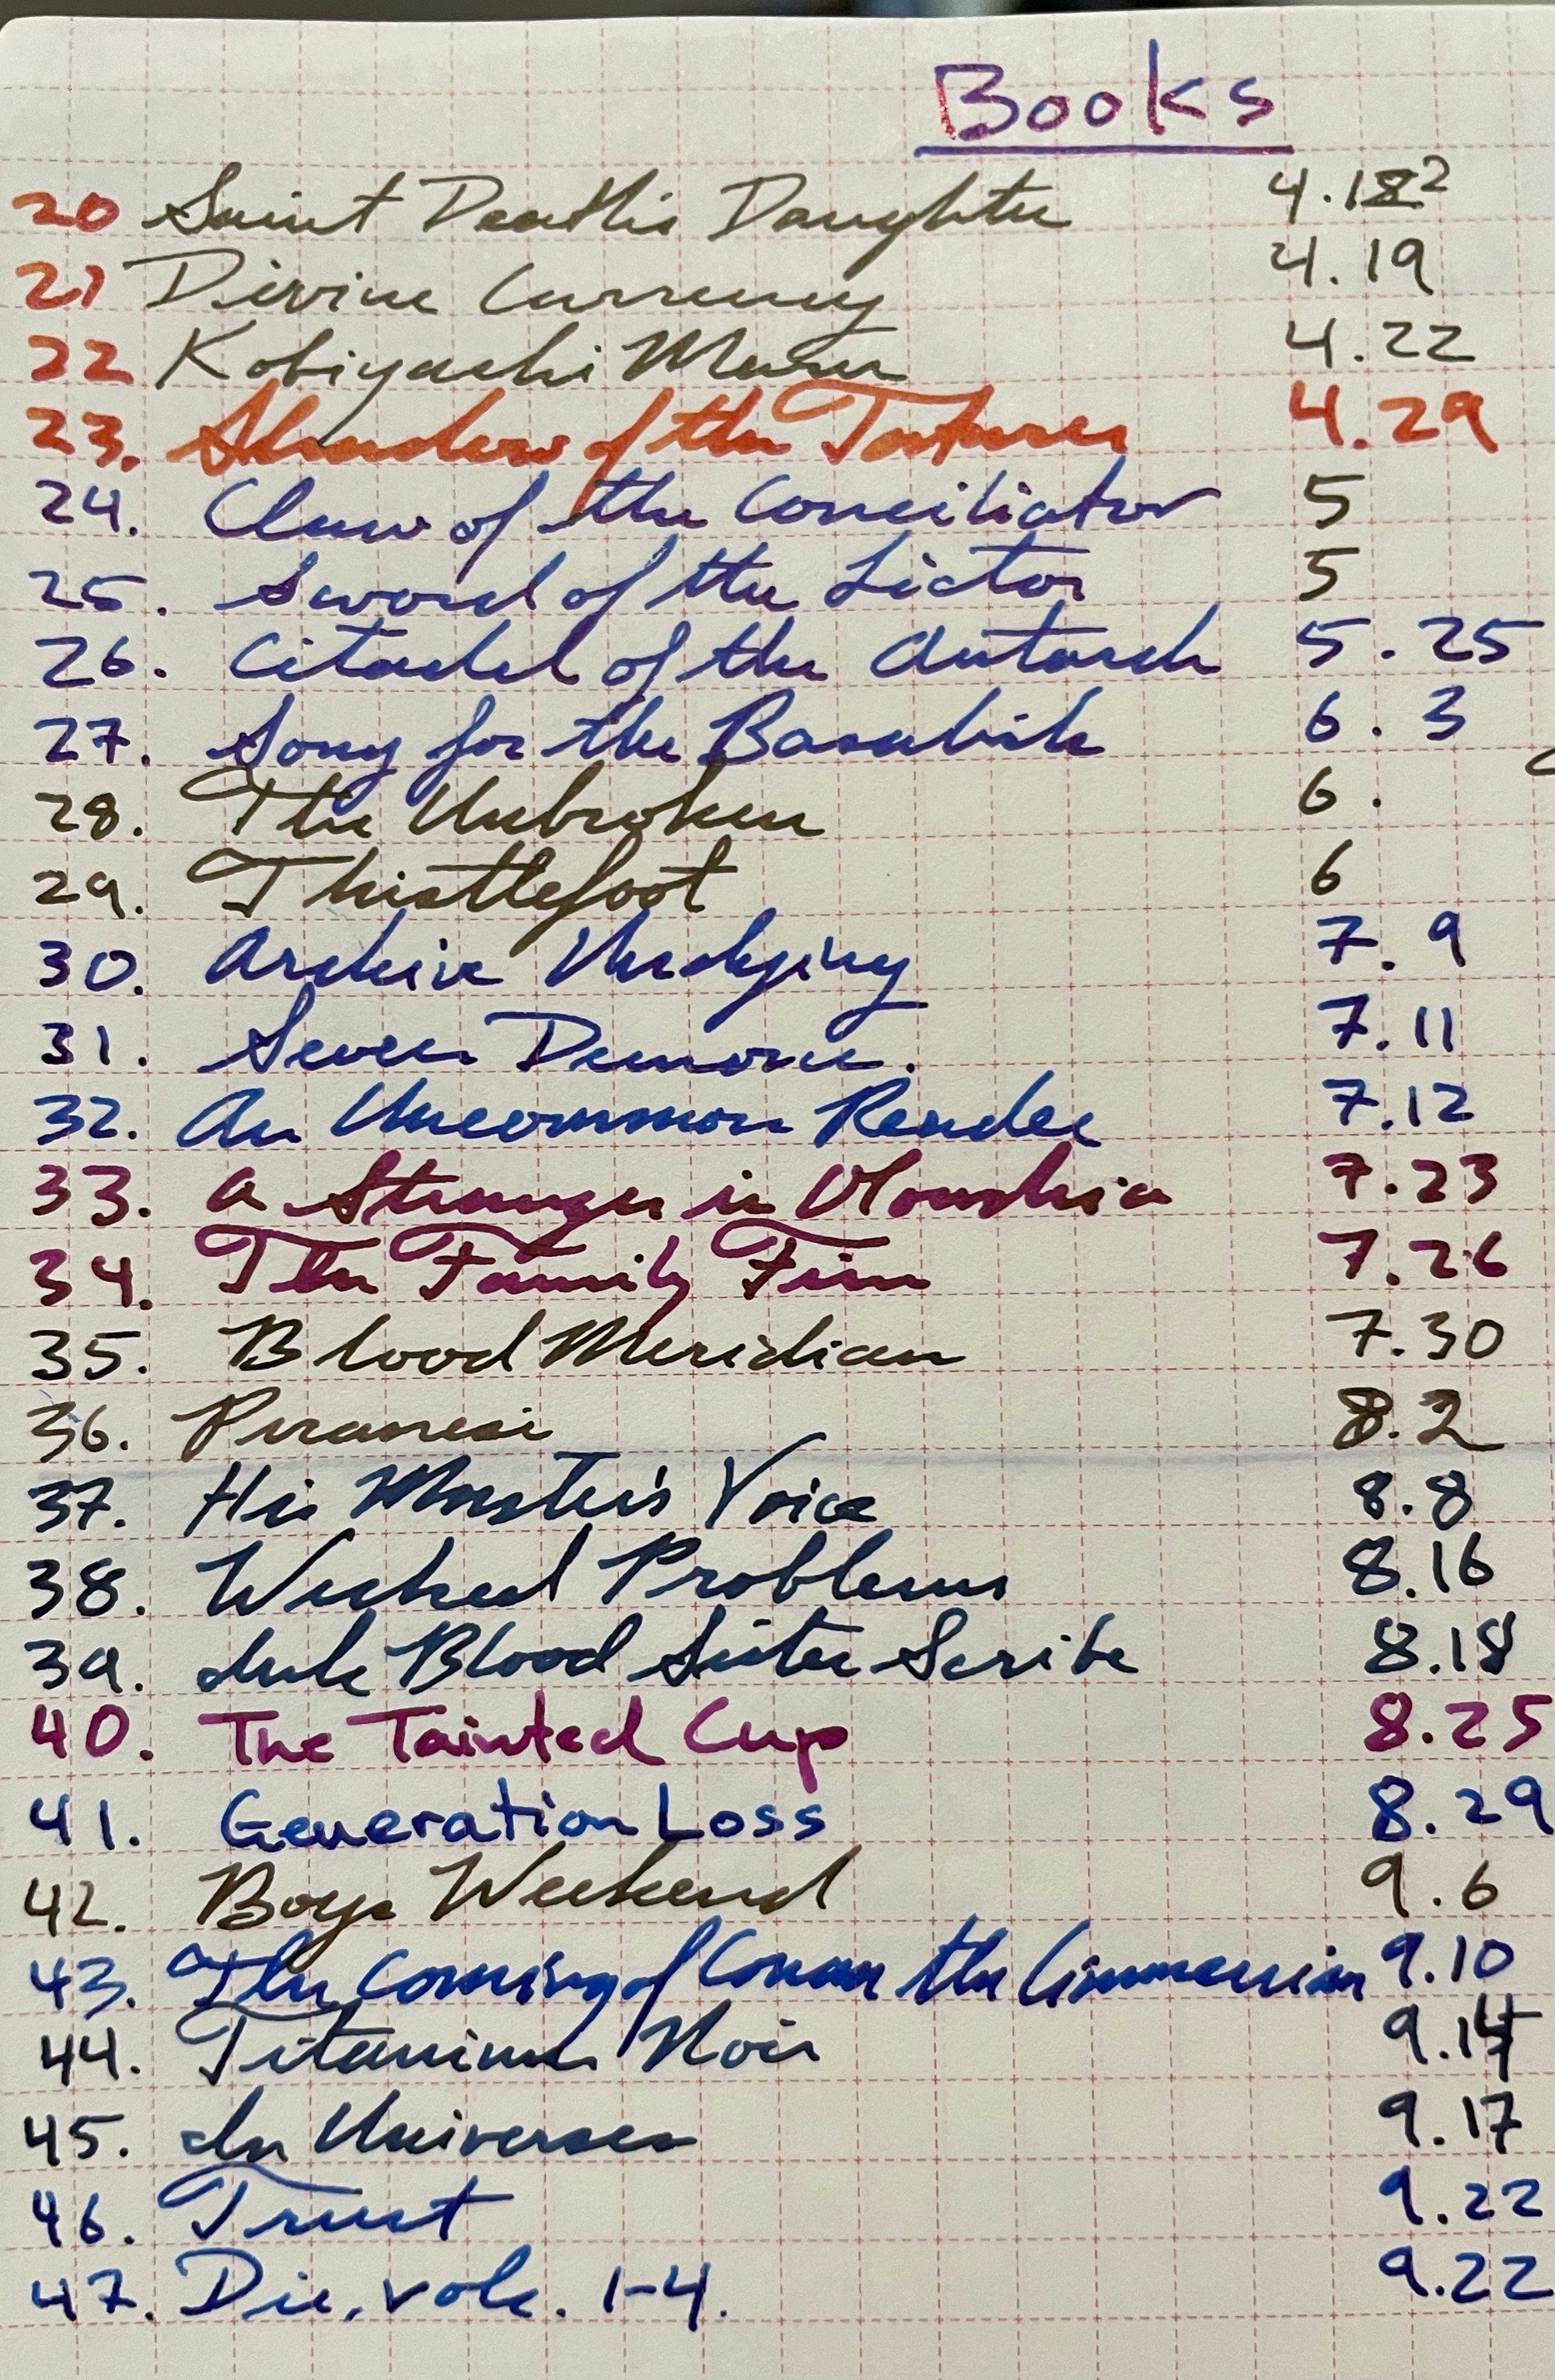 Books
20 Saint Death's Daughter 4.18²
21 Divine Currency 4.19
22 Kobiyashi Maru 4.22
23. Shadow of the Torturer 4.29
24. Claw of the Conciliator 5
25. Sword of the Lictor 5
26. Citadel of the Autarch 5.25
27. Song for the Basilisk 6.3
28. The Unbroken 6.
29. Thistlefoot 6
30. Archive Undying 7.9
31. Seven Demons. 7.11
32. An Uncommon Reader 7.12
33. A Stranger in Olondria 7.23
34. The Family Firm 7.26
35. Blood Meridian 7.30
36. Piranesi 8.2
37. His Master's Voice 8.8
38. Wicked Problems 8.16
39. Ink Blood Sister Scribe 8.18
40. The Tainted Cup 8.25
41. Generation Loss 8.29
42. Boys Weekend 9.6
43. The Coming of Conan the Cimmerian 9.10
44. Titanium Noir 9.14
45. In Universes 9.17
46. Trust 9.22
47. Die, vols. 1-4. 9.22